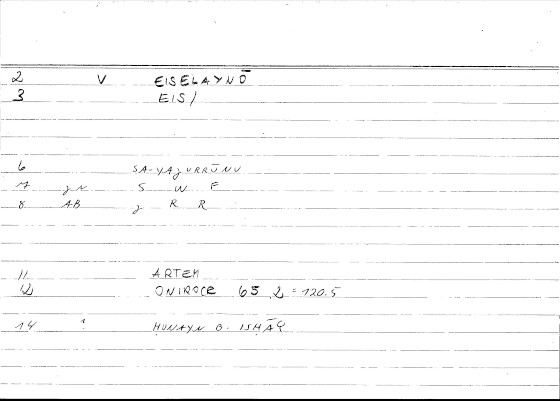 2 V EISELAYNŌ
3 EIS/
6 SA-YAȷURRŪNU
7 ȷN S W F
8 AB ȷ R R
11 ARTEM
12 ONIROCE 65 2 = 120.5
14 ? ḤUNAYN B. ISḤĀQ